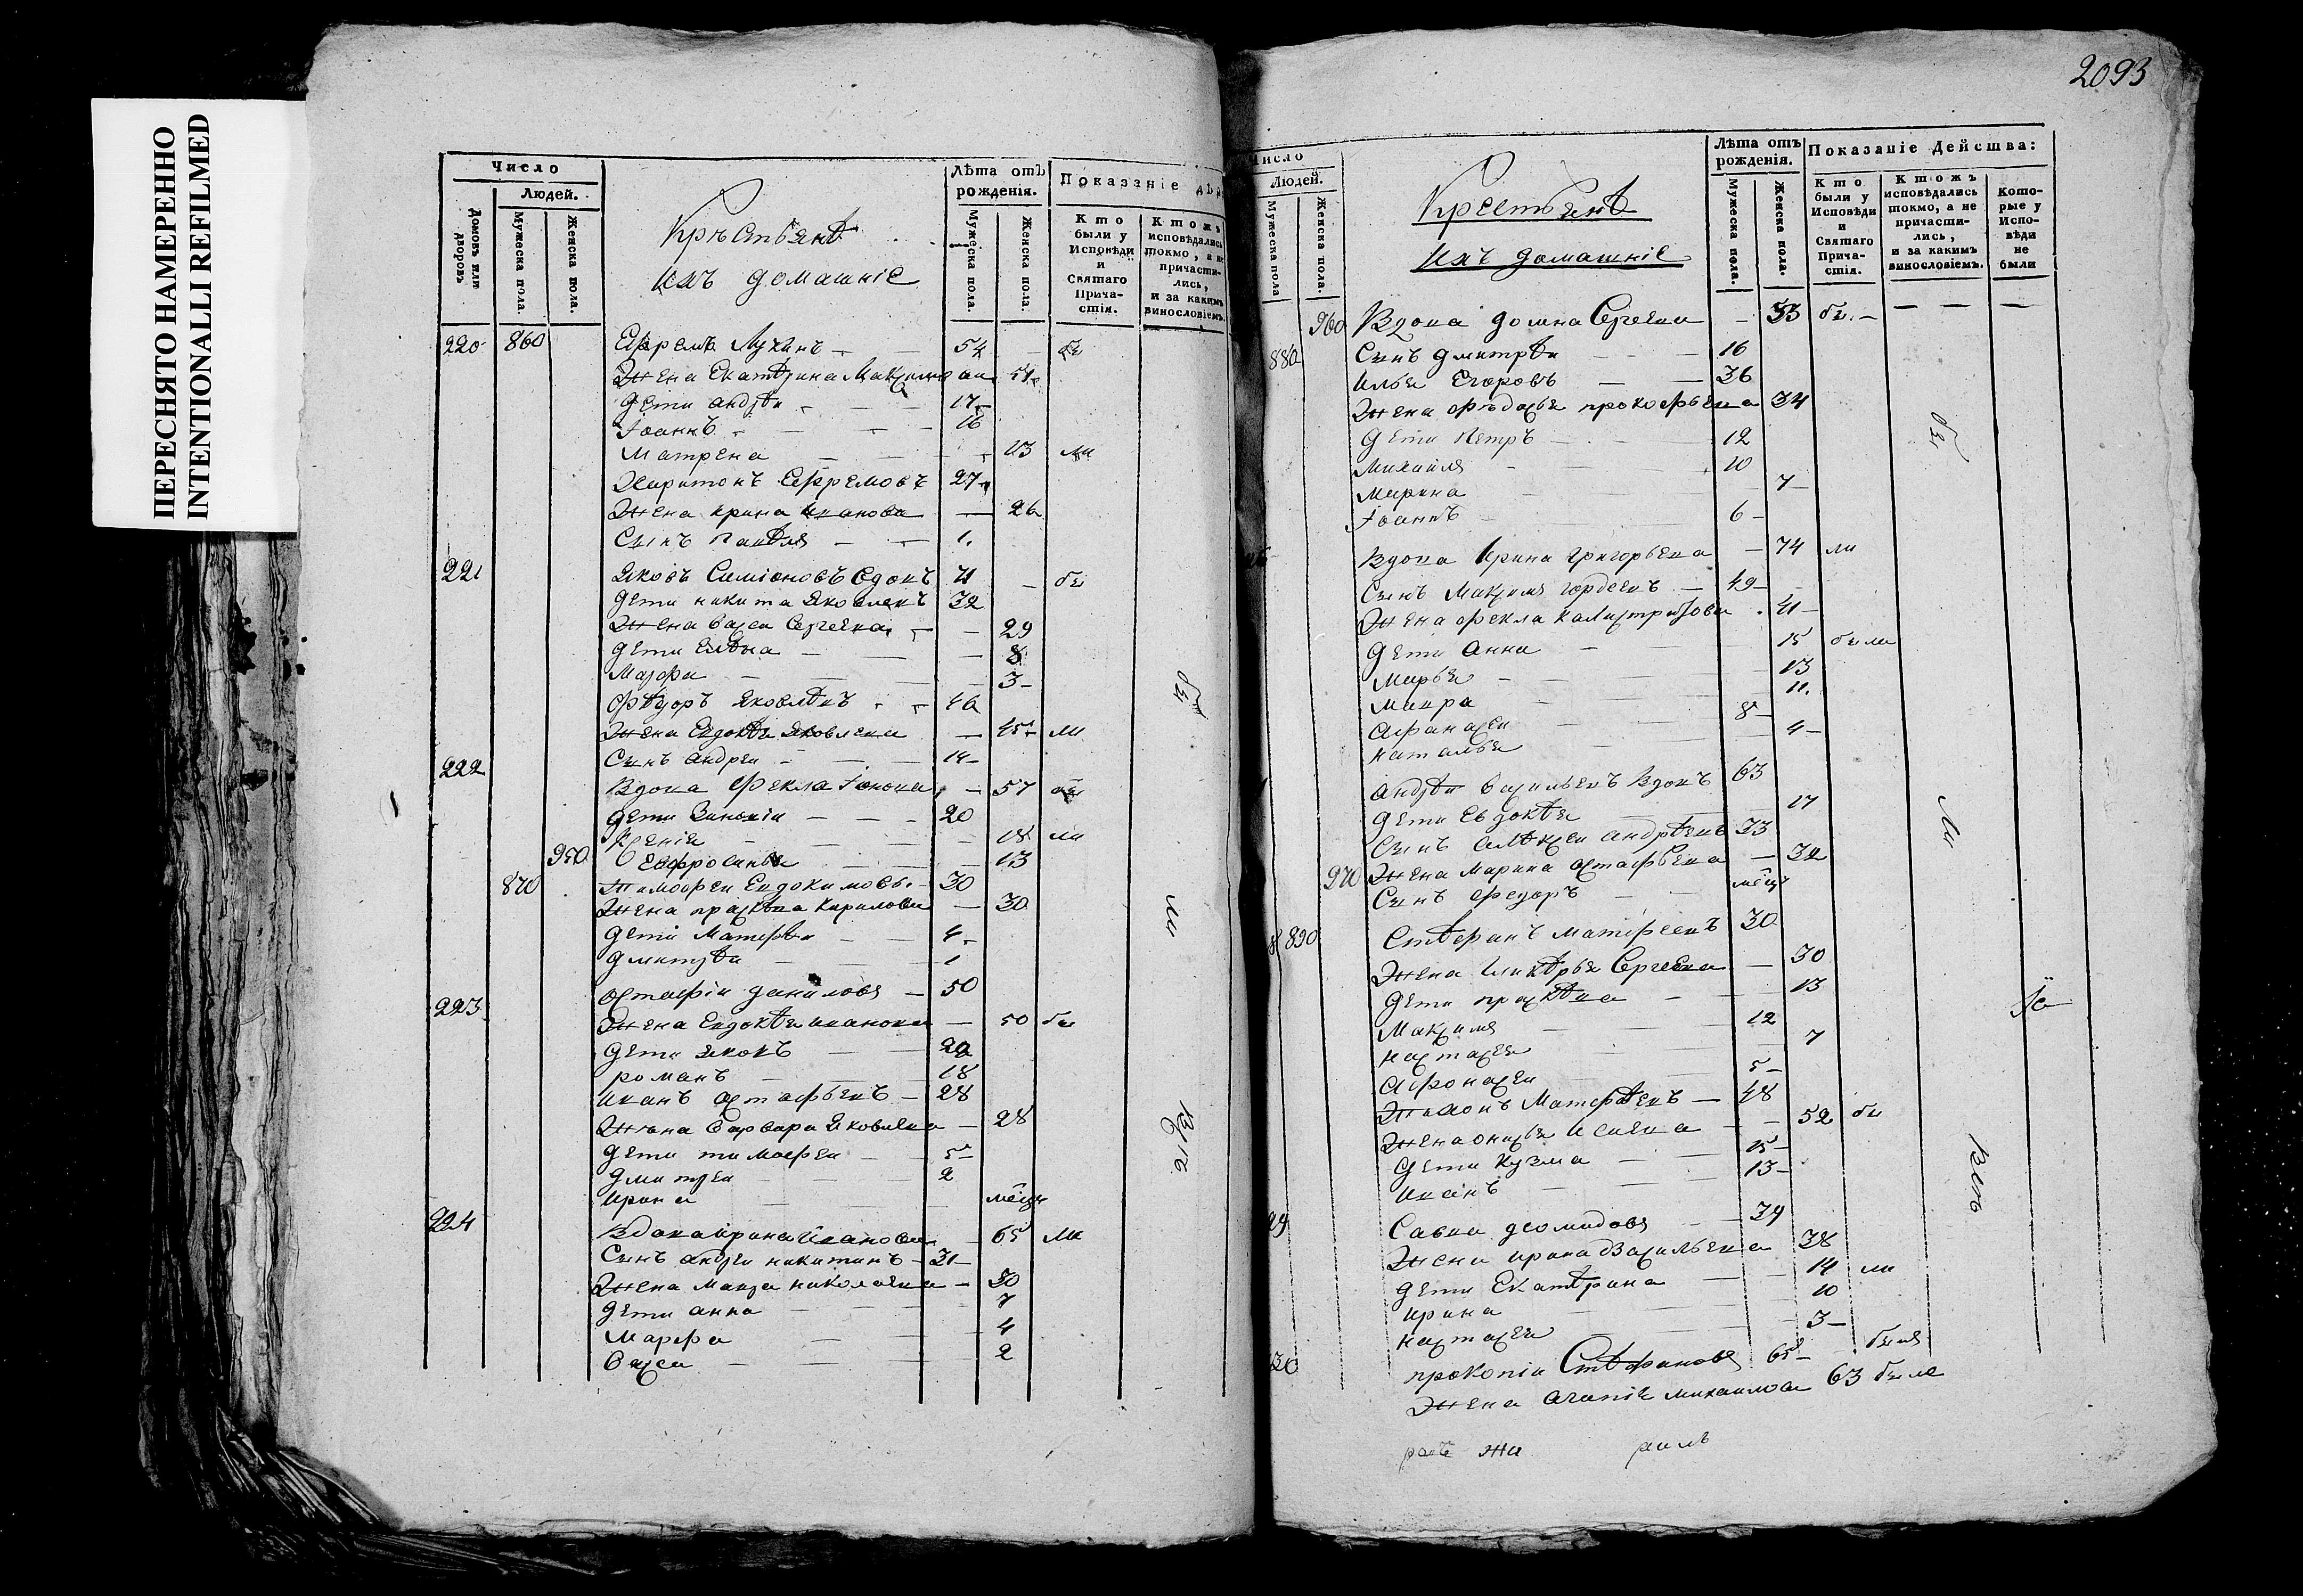 ПЕРЕСНЯТО НАМЕРЕННО
INTENTIONALLI REFILMED
Число
Людей.
Домовъ или дворовъ
Мужеска пола.
Женска пола.
Крестьянѣ
ихъ домашніе
Лѣта отъ рожденія.
Мужеска пола.
Женска пола.
Показаніе дѣй
Кто были у Исповѣди и Святаго Прича-стія.
Ктожъ исповѣдались токмо, а не причасти-лись, и за какимъ винословіемъ.
220 860 Ефремъ Лукинъ 54 бы
Жена Екатѣрина Максимова 54
Дети андрѣи 17
Іоаннъ 16
Матрена 13 ли
Харитонъ Ефремовъ 27
Жена ирина иванова 26
Сынъ павѣлъ 1
221 Яковъ Симіоновъ вдовъ 71 бы
Дети никита Яковлевъ 32
Жена васса Сергеева 29
Дети Елѣна 8
Марфа 3
Фѣдоръ Яковлѣвъ 46
Жена Евдокѣя Яковлева 45 ли
Сынъ андреи 14
222 Вдова Фекла 57 бы
Дети Зиновіи 20
Ксенія 18 ли
950 Ефросинья 13
870 Тимофеи Евдокимовъ 30
Жена прасковья Кирилова 30
Дети Матвѣи 4
Дмитрѣи 1
223 Остафіи даниловъ 50
Жена Евдокѣя иванова 50 бы
Дети яковъ 20
романъ 18
иванъ остафьевъ 28
Жена Варвара Яковлева 28
Дети тимофеи 5
Дмитреи 2
ирина мѣсяц
224 Вдова ирина иванова 65 ли
Сынъ андреи никитинъ 31
Жена мавра николаева 30
Дети анна 7
Марфа 4
Васса 2
бы
ли
всѣ
2093
Число
Людей.
Мужеска пола
Женска пола.
Крестьянѣ
ихъ домашніе
Лѣта отъ рожденія.
Мужеска пола.
Женска пола.
Показаніе Действа:
Кто были у Исповѣди и Святаго Прича-стія.
Ктожъ исповѣдались токмо, а не причасти-лись, и за какимъ винословіемъ.
Кото-рые у Испо-вѣди не были
960 Вдова домна Сергеева 53 бы
880 Сынъ дмитрѣи 16
Илья Егоровъ 36
Жена прокофьева 34
Дети Петръ 12
Михаилъ 10
Марина 7
Іоаннъ 6
Вдова Ирина григорьева 74 ли
Сынъ Максимъ гордеевъ 49
Жена фекла калистратова 41
Дети Анна 15 были
Марья 13
Мавра 11
афанасеи 8
наталья 4
андрѣи васильевъ вдовъ 63
Дети Евдокѣя 17
Сынъ алѣксеи андрѣевъ 33
970 Жена марина остафьева 32
Сынъ Федоръ мѣсяц
890 Стѣфанъ матвѣевъ 30
Жена Сергеева 30
Дети прасковья 13
Максимъ 12
настасья 7
афонасеи 5
Матвѣевъ 48
Жена 52 бы
Дети Кузма 15
иванъ 13
Савва деомидовъ 39
Жена ирина Васильева 38
Дети Екатѣрина 14 ли
ирина 10
настасья 3
прокопіи Стѣфановъ 65 былъ
Жена агапія михаилова 63 была
бы
ли